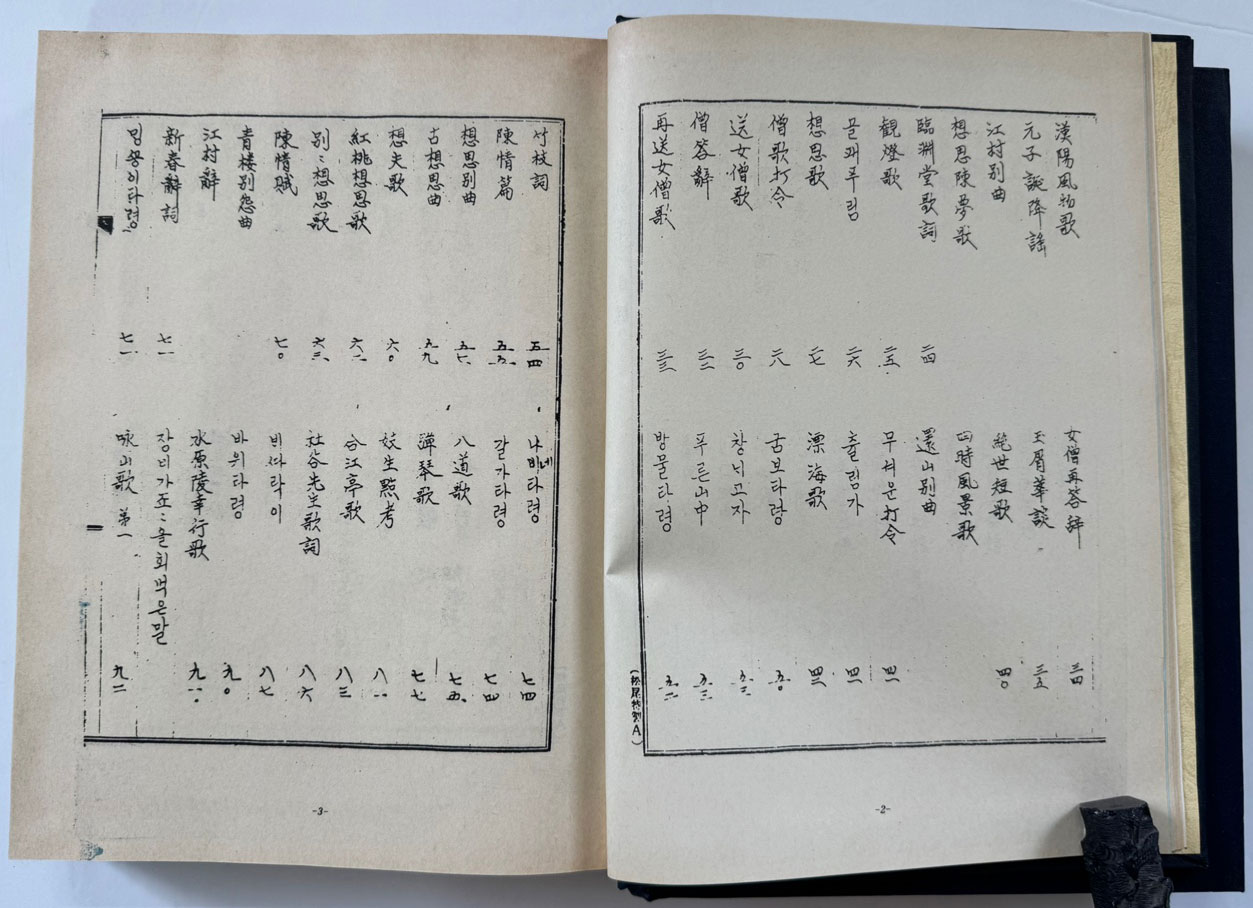 漢陽風物歌
元子誕降謠
江村別曲
想思陳夢歌
臨淵堂歌詞 二四
観燈歌 二五
끌패푸림 二六
想思歌 二七
僧歌打令 二八
送女僧歌 三〇
僧答辭 三二
再送女僧歌 三三
女僧再答辞 三四
玉屑華談 三五
絶世短歌 四〇
四時風景歌
還山別曲
무셔운打令 四一
출림가 四二
漂海歌 四三
굼보타량 五〇
창뇌고자
푸른山中
방물타령
(松屋特製A)
-2-
竹枝詞 五四
陳情篇 五五
想思別曲 五七
古想思曲 五九
想夫歌 六〇
紅桃想思歌 六二
別〻想思歌 六三
陳情賦 七〇
青楼別怨曲
江村辭
新春辭詞 七一
밍꽁이타령 七一
나비타령 七四
갈가타령 七四
八道歌 七五
彈琴歌 七七
妓生點考 八一
合江亭歌 八三
社谷先生歌詞 八六
빈싸락이 八七
바위타령 九〇
水原陵幸行歌 九一
장긔가죠〻을회먹은말
咏山歌 第一 九二
-3-